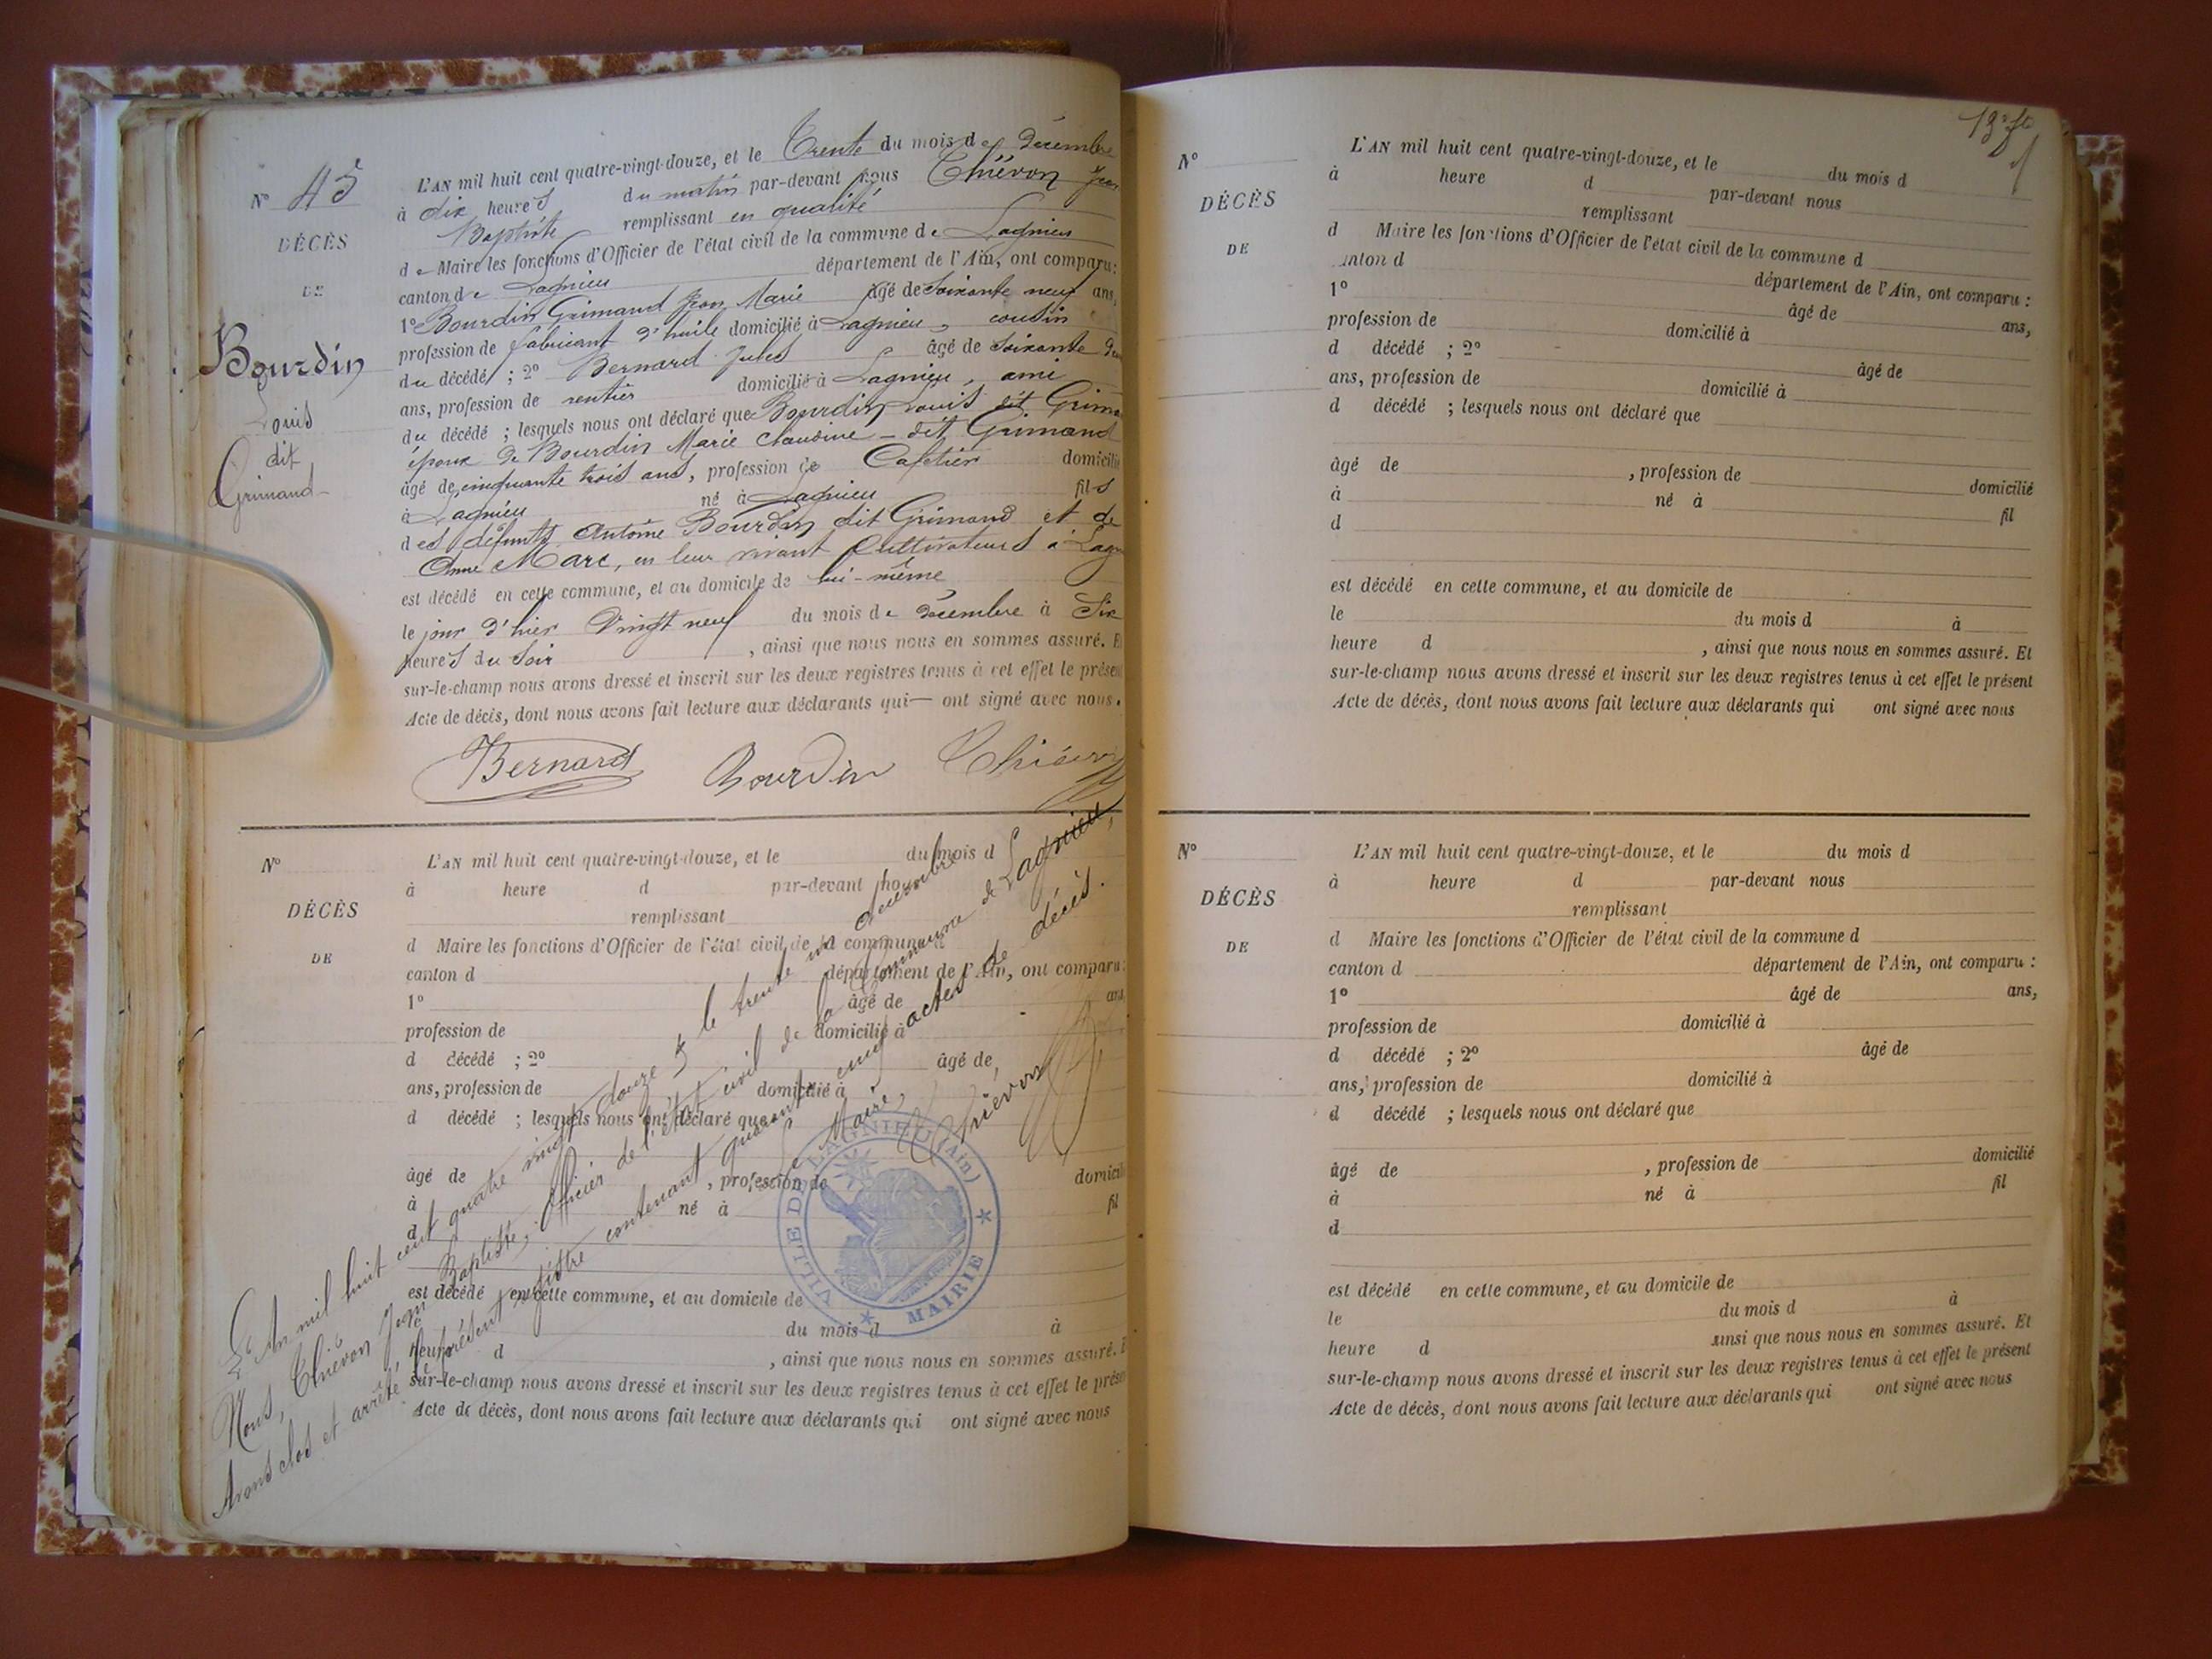 N° 45
DÉCÈS
DE
Bourdin
Louis
dit
Grimand
L'AN mil huit cent quatre-vingt-douze, et le Trente du mois de décembre
à dix heures du matin par-devant nous Thiévon Jean
Baptiste remplissant en qualité
de Maire les fonctions d'Officier de l'état civil de la commune de Lagnieu
canton de Lagnieu département de l'Ain, ont comparu :
1° Bourdin Grimand Jean Marie âgé de Soixante neuf ans,
profession de fabricant d'huile domicilié à Lagnieu, cousin
du décédé ; 2° Bernard Jules âgé de soixante
ans, profession de rentier domicilié à Lagnieu, ami
du décédé ; lesquels nous ont déclaré que Bourdin Louis dit
époux de Bourdin Marie Claudine - dit Grimand
âgé de cinquante trois ans, profession de Cafetier domicilié
à Lagnieu né à Lagnieu fils
des défunts Antoine Bourdin dit Grimand et de
Anne Marc, en leur vivant Cultivateurs à
est décédé en cette commune, et au domicile de lui-même
le jour d'hier Vingt neuf du mois de décembre à Six
heures du soir, ainsi que nous nous en sommes assuré.
sur-le-champ nous avons dressé et inscrit sur les deux registres tenus à cet effet le
Acte de décès, dont nous avons fait lecture aux déclarants qui — ont signé avec nous.
Bernard Bourdin Thiévon
N°
DÉCÈS
DE
L'AN mil huit cent quatre-vingt-douze, et le du mois d
à heure d par-devant nous
remplissant
d Maire les fonctions d'Officier de l'état civil de la commune d
canton d département de l'Ain, ont comparu :
1° âgé de ans
profession de domicilié à
d décédé ; 2° âgé de
ans, profession de domicilié à
d décédé ; lesquels nous ont déclaré que
âgé de , profession de
à né à fil
d
est décédé en cette commune, et au domicile de
le du mois d à
heure d , ainsi que nous nous en sommes assuré.
sur-le-champ nous avons dressé et inscrit sur les deux registres tenus à cet effet le
Acte de décès, dont nous avons fait lecture aux déclarants qui ont signé avec nous
L'An mil huit cent quatre vingt douze & le trente un décembre
Nous, Thiévon Jean Baptiste, Officier de l'état civil de la Commune de Lagnieu,
Avons clos et arrêté le présent registre contenant quarante cinq actes de décès.
Le Maire,
Thiévon
VILLE DE LAGNIEU (Ain)
MAIRIE
N°
DÉCÈS
DE
L'AN mil huit cent quatre-vingt-douze, et le du mois d
à heure d par-devant nous
remplissant
d Maire les fonctions d'Officier de l'état civil de la commune d
anton d département de l'Ain, ont comparu :
1° âgé de ans,
profession de domicilié à
d décédé ; 2° âgé de
ans, profession de domicilié à
d décédé ; lesquels nous ont déclaré que
âgé de , profession de domicilié
à né à fil
d
est décédé en cette commune, et au domicile de
le du mois d à
heure d , ainsi que nous nous en sommes assuré. Et
sur-le-champ nous avons dressé et inscrit sur les deux registres tenus à cet effet le présent
Acte de décès, dont nous avons fait lecture aux déclarants qui ont signé avec nous
N°
DÉCÈS
DE
L'AN mil huit cent quatre-vingt-douze, et le du mois d
à heure d par-devant nous
remplissant
d Maire les fonctions d'Officier de l'état civil de la commune d
canton d département de l'Ain, ont comparu :
1° âgé de ans,
profession de domicilié à
d décédé ; 2° âgé de
ans, profession de domicilié à
d décédé ; lesquels nous ont déclaré que
âgé de , profession de domicilié
à né à fil
d
est décédé en cette commune, et au domicile de
le du mois d à
heure d ainsi que nous nous en sommes assuré. Et
sur-le-champ nous avons dressé et inscrit sur les deux registres tenus à cet effet le présent
Acte de décès, dont nous avons fait lecture aux déclarants qui ont signé avec nous